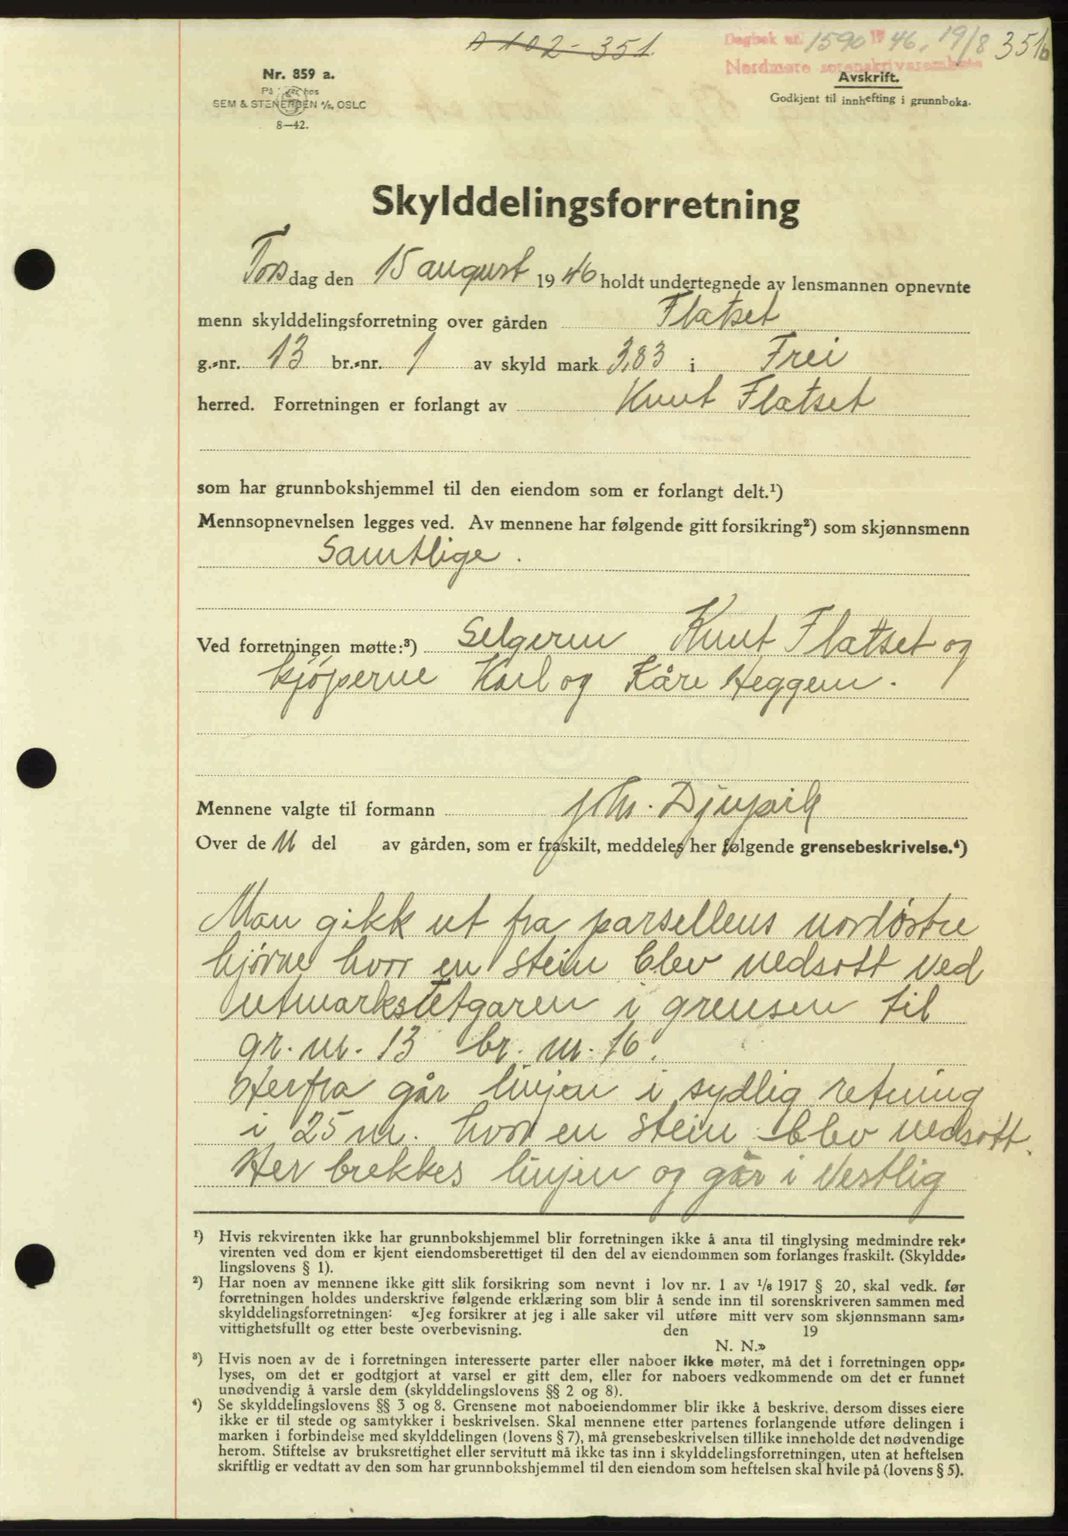 A 102 - 351
Dagbok nr. 1590 1946, 19/8 351b
Nordmøre sorenskriverembete
Nr. 859 a.
SEM & STENERSEN A/S, OSLO
8—42.
Avskrift.
Godkjent til innhefting i grunnboka.
Skylddelingsforretning
Torsdag den 15 august 1946 holdt undertegnede av lensmannen opnevnte
menn skylddelingsforretning over gården Flatset
g.-nr. 13 br.-nr. 1 av skyld mark 3,83 i Frei
herred. Forretningen er forlangt av Knut Flatset
som har grunnbokshjemmel til den eiendom som er forlangt delt.¹)
Mennsopnevnelsen legges ved. Av mennene har følgende gitt forsikring²) som skjønnsmenn
Samtlige.
Ved forretningen møtte:³) Selgeren Knut Flatset og
kjøperne Karl og Kåre Heggem.
Mennene valgte til formann Joh. Djupvik
Over de n del av gården, som er fraskilt, meddeles her følgende grensebeskrivelse.⁴)
Man gikk ut fra parsellens nordøstre
hjørne hvor en stein blev nedsatt ved
utmarkstetgaren i grensen til
gr. nr. 13 br. nr. 16.
Herfra går linjen i sydlig retning
i 25 m. hvor en stein blev nedsatt.
Her brekkes linjen og går i Vestlig
¹) Hvis rekvirenten ikke har grunnbokshjemmel blir forretningen ikke å anta til tinglysing medmindre rek-
virenten ved dom er kjent eiendomsberettiget til den del av eiendommen som forlanges fraskilt. (Skyldde-
lingslovens § 1).
²) Har noen av mennene ikke gitt slik forsikring som nevnt i lov nr. 1 av 1/6 1917 § 20, skal vedk. før
forretningen holdes underskrive følgende erklæring som blir å sende inn til sorenskriveren sammen med
skylddelingsforretningen: «Jeg forsikrer at jeg i alle saker vil utføre mitt verv som skjønnsmann sam-
vittighetsfullt og etter beste overbevisning. den 19
N. N.»
³) Hvis noen av de i forretningen interesserte parter eller naboer ikke møter, må det i forretningen opp-
lyses, om det er godtgjort at varsel er gitt dem, eller for naboers vedkommende om det er funnet
unødvendig å varsle dem (skylddelingslovens §§ 2 og 8).
⁴) Se skylddelingslovens §§ 3 og 8. Grensene mot naboeiendommer blir ikke å beskrive, dersom disses eiere
ikke er til stede og samtykker i beskrivelsen. Skal mennene etter partenes forlangende utføre delingen i
marken i forbindelse med skylddelingen (lovens § 7), må grensebeskrivelsen tillike inneholde det nødvendige
herom. Stiftelse av bruksrettighet eller servitutt må ikke tas inn i skylddelingsforretningen, uten at heftelsen
skriftlig er vedtatt av den som har grunnbokshjemmel til den eiendom som heftelsen skal hvile på (lovens § 5).